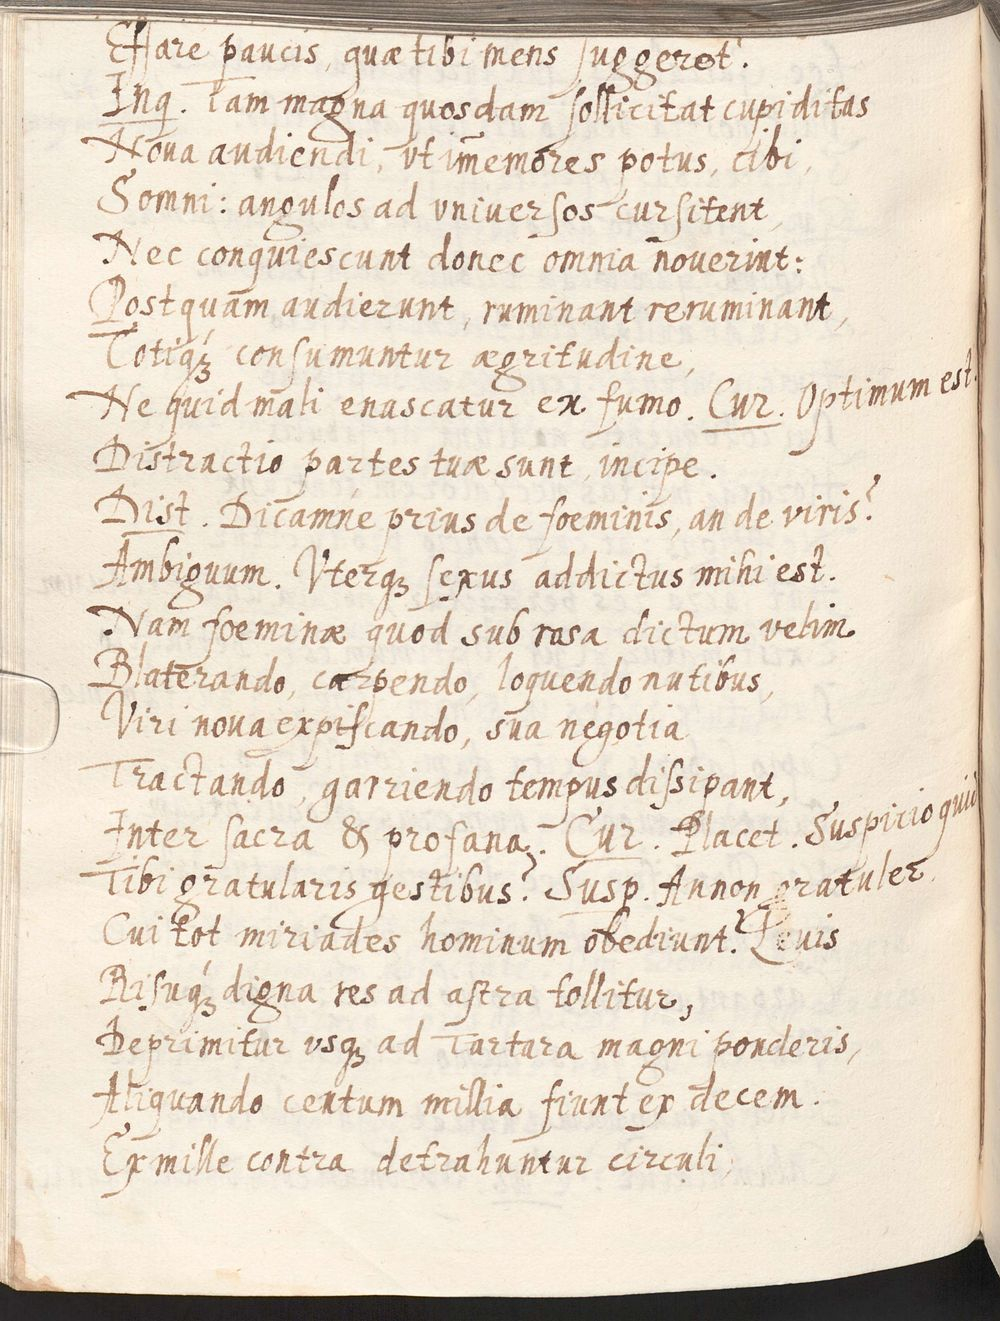 Effare paucis, quæ tibi mens suggeret.
Inq. Tam magna quosdam sollicitat cupiditas
Noua audiendi, vt im̄emores potus, cibi,
Somni: angulos ad vniuersos cursitent,
Nec conquiescunt donec omnia nouerint:
Postquam audierunt, ruminant reruminant,
Totiq́ꝫ consumuntur ægritudine,
Ne quid mali enascatur ex fumo. Cur. Optimum est.
Distractio partes tuæ sunt, incipe.
Dist. Dicamne prius de foeminis, an de viris?
Ambiguum. Vterqꝫ sexus addictus mihi est.
Nam foeminæ quod sub rosa dictum velim
Blaterando, carpendo, loquendo nutibus,
Viri noua expiscando, sua negotia
Tractando, garriendo tempus dissipant,
Inter sacra & profana. Cur. Placet. Suspicio quid
Tibi gratularis gestibus? Susp. Annon gratuler
Cui tot miriades hominum obediunt? Leuis
Risuq́ꝫ digna res ad astra tollitur,
Deprimitur vsqꝫ ad Tartara magni ponderis,
Aliquando centum millia fiunt ex decem.
Ex mille contra detrahuntur circuli,